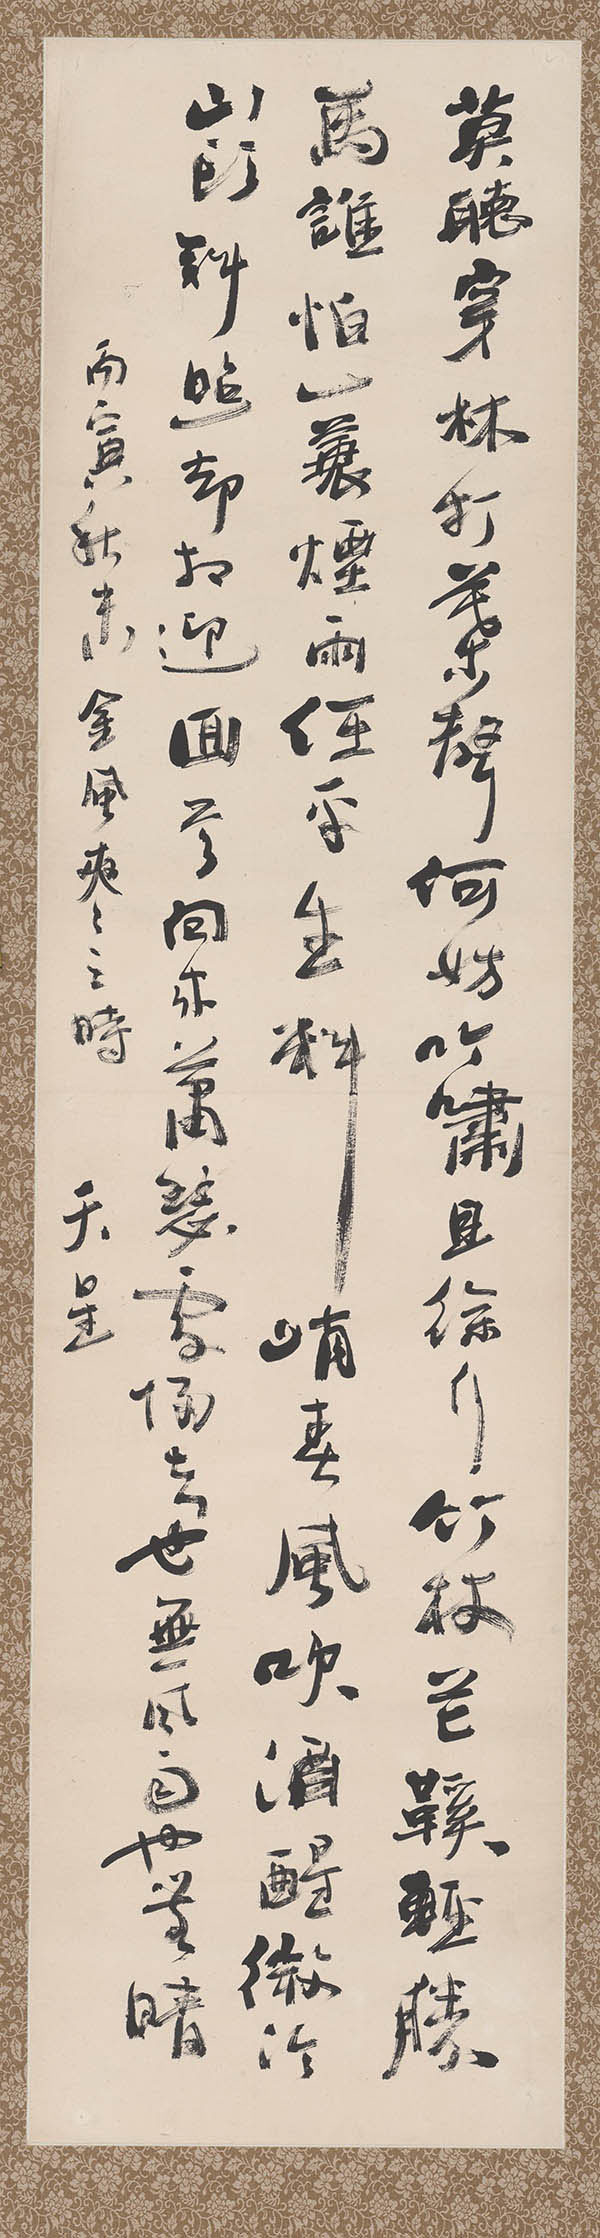 莫聽穿林打葉聲何妨吟嘯且徐行竹杖芒鞵輕勝
馬誰怕一蓑煙雨任平生料峭春風吹酒醒微冷
山頭斜照却相迎回首向來蕭瑟處歸去也無風雨也無晴
丙寅秋金風爽々之時
天星